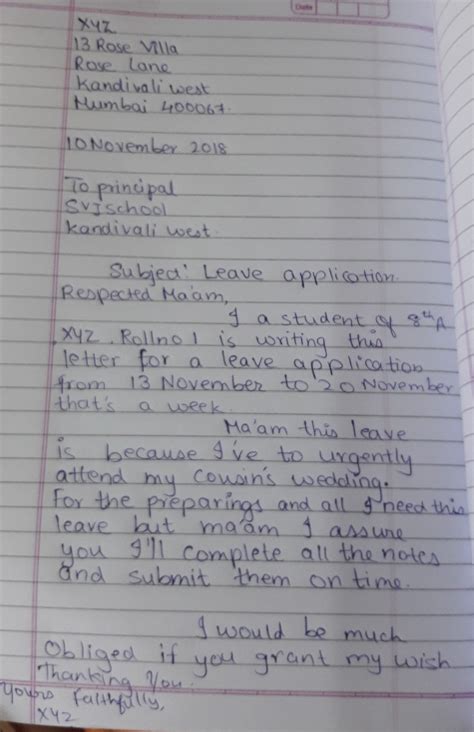 Date
XYZ
13 Rose Villa
Rose Lane
Kandivali west
Mumbai 400067.
10 November 2018
To principal
SVJ School
Kandivali west.
Subject: Leave application.
Respected Ma'am,
I a student of 8th A
XYZ. Rollno 1 is writing this
letter for a leave application
from 13 November to 20 November
that's a week.
Ma'am this leave
is because I've to urgently
attend my cousin's wedding.
For the preparings and all I need this
leave but ma'am I assure
you I'll complete all the notes
and submit them on time.
I would be much
Obliged if you grant my wish
Thanking You.
Yours Faithfully,
XYZ